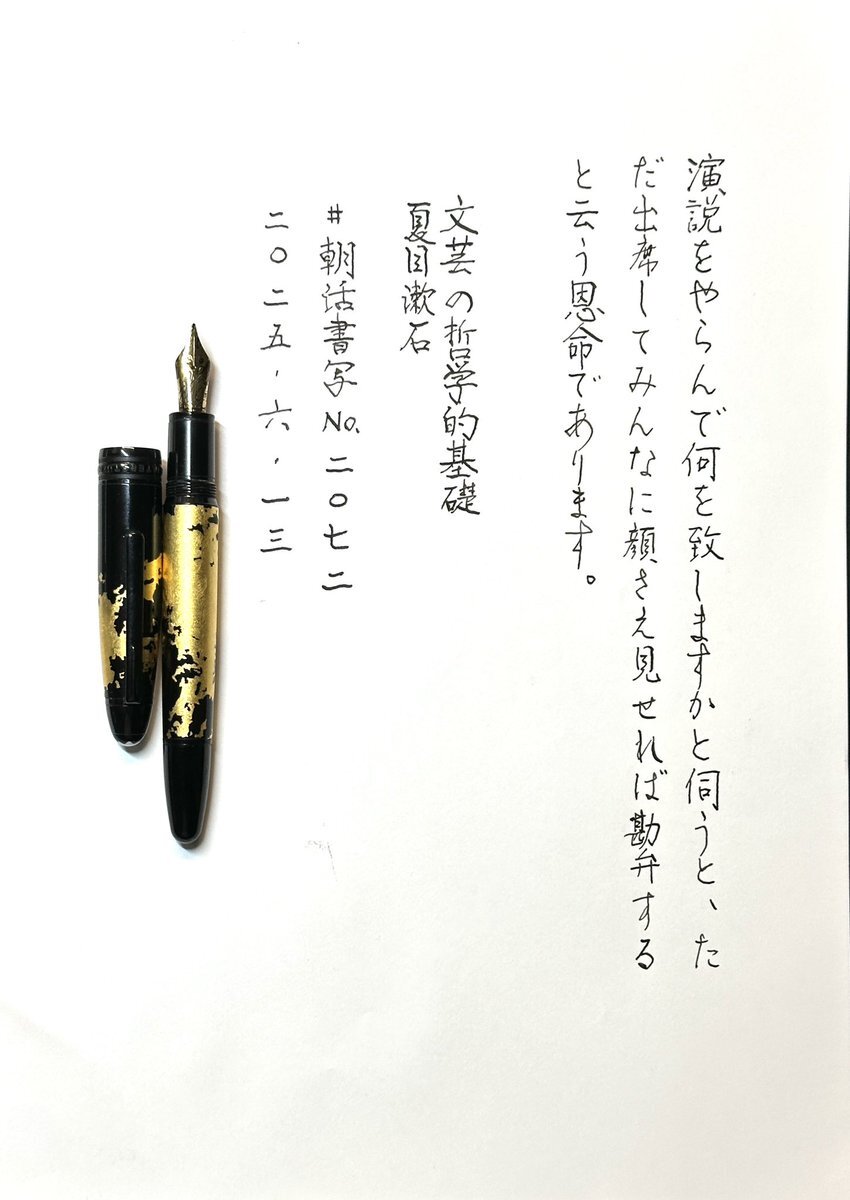 演説をやらんで何を致しますかと伺うと、た
だ出席してみんなに顔さえ見せれば勘弁する
と云う恩命であります。
文芸の哲学的基礎
夏目漱石
#朝活書写No.二〇七二
二〇二五.六.一三